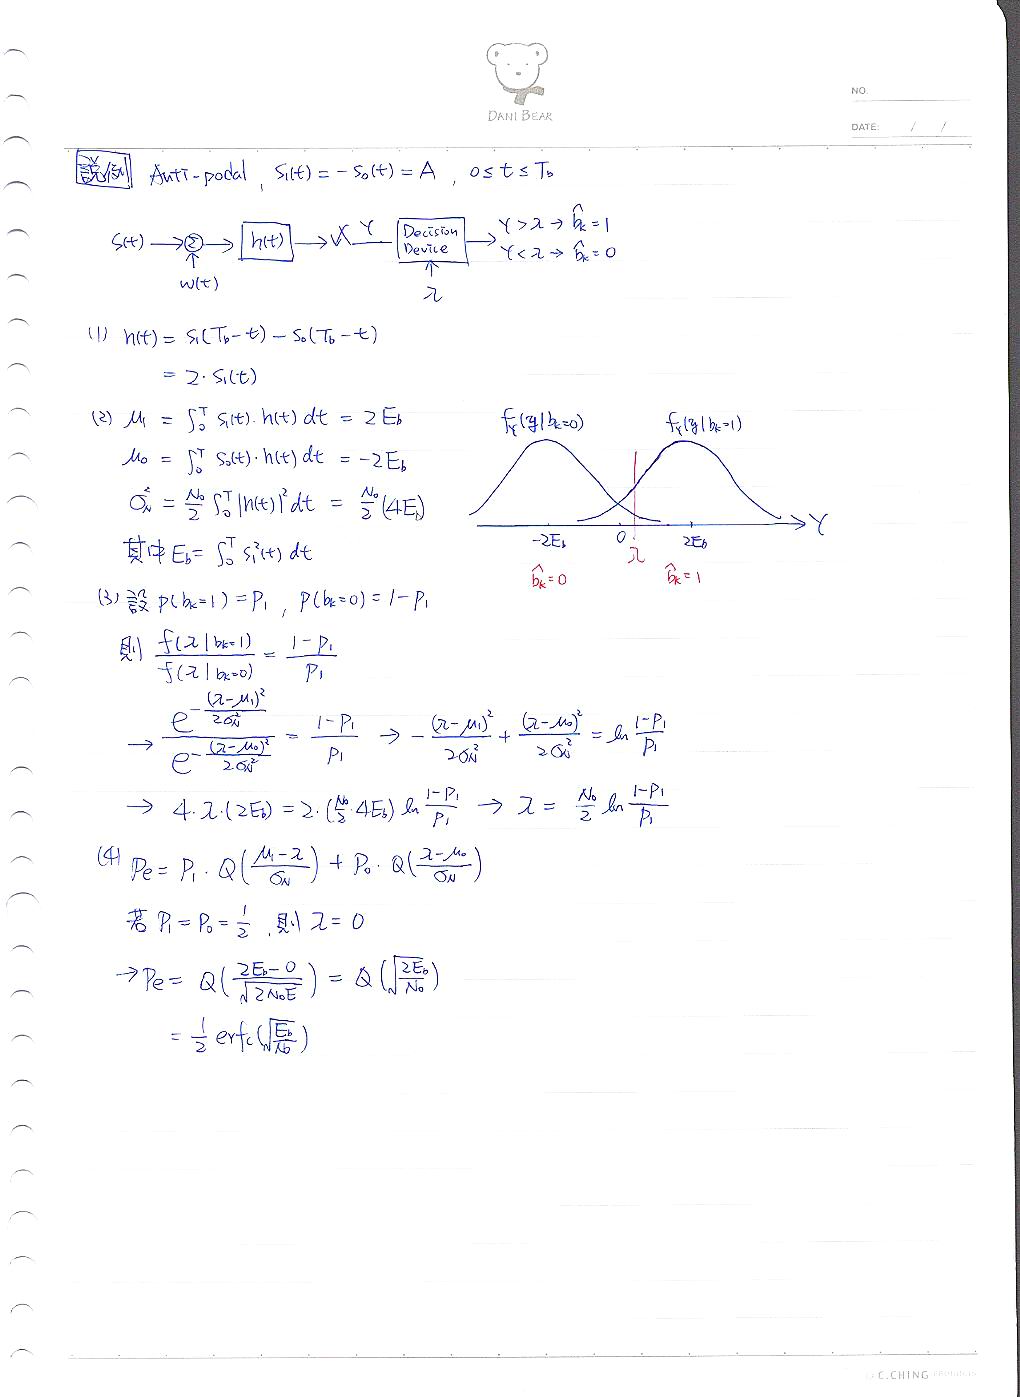 DANI BEAR
NO.
DATE: / /
說例 Anti-podal, S₁(t) = -S₀(t) = A, 0 ≤ t ≤ T_b
S(t) → Σ → h(t) → Y Decision Device → Y > λ → b̂ₖ = 1
Y < λ → b̂ₖ = 0
w(t)
λ
(1) h(t) = S₁(T_b - t) - S₀(T_b - t)
= 2 · S₁(t)
(2) μ₁ = ∫₀ᵀ S₁(t) · h(t) dt = 2E_b
μ₀ = ∫₀ᵀ S₀(t) · h(t) dt = -2E_b
σ_N² = N₀/2 ∫₀ᵀ |h(t)|² dt = N₀/2 (4E_b)
其中 E_b = ∫₀ᵀ S₁²(t) dt
f_Y(y|bₖ=0) f_Y(y|bₖ=1)
-2E_b 0 λ 2E_b Y
b̂ₖ = 0 b̂ₖ = 1
(3) 設 P(bₖ=1) = P₁, P(bₖ=0) = 1 - P₁
則 f(λ|bₖ=1) / f(λ|bₖ=0) = (1-P₁)/P₁
→ e^(-(λ-μ₁)²/2σ_N²) / e^(-(λ-μ₀)²/2σ_N²) = (1-P₁)/P₁ → -(λ-μ₁)²/2σ_N² + (λ-μ₀)²/2σ_N² = ln (1-P₁)/P₁
→ 4·λ·(2E_b) = 2·(N₀/2 · 4E_b) ln (1-P₁)/P₁ → λ = N₀/2 ln (1-P₁)/P₁
(4) Pe = P₁ · Q((μ₁-λ)/σ_N) + P₀ · Q((λ-μ₀)/σ_N)
若 P₁ = P₀ = 1/2, 則 λ = 0
→ Pe = Q((2E_b - 0)/√(2N₀E)) = Q(√(2E_b/N₀))
= 1/2 erfc(√(E_b/N₀))
C.CHING